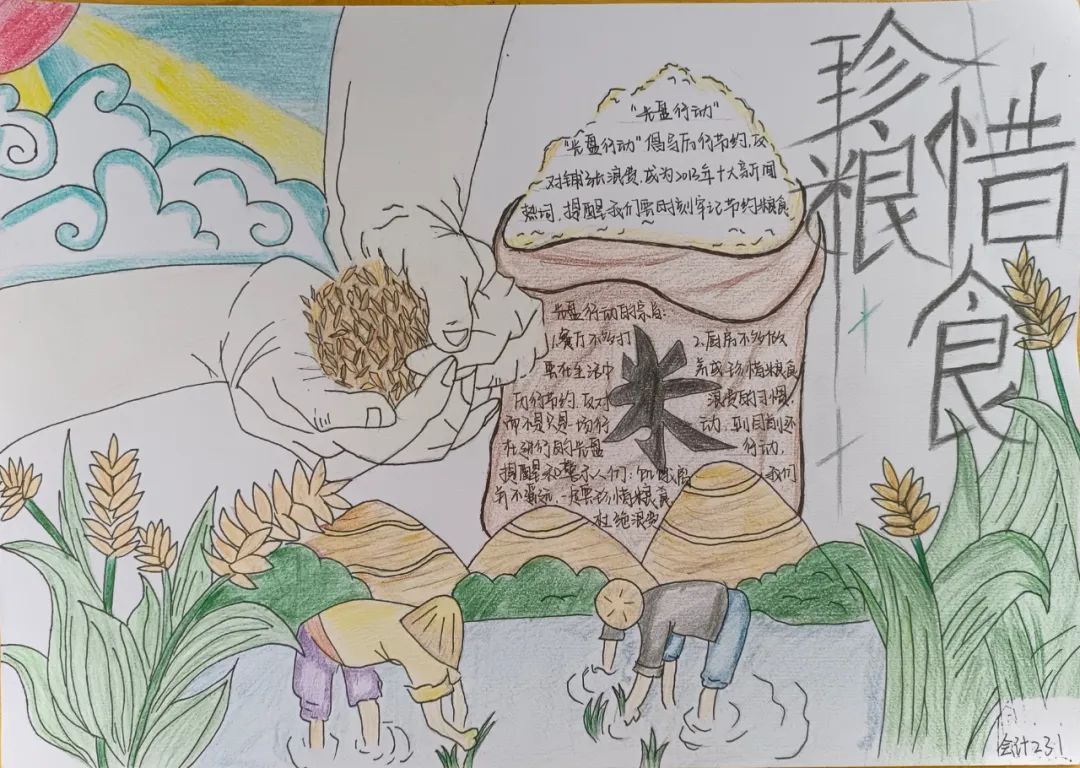 珍惜
粮食
"光盘行动"
"光盘行动"倡导厉行节约,反
对铺张浪费,成为2013年十大新闻
热词,提醒我们要时刻牢记节约粮食
光盘行动的宗旨:
1.餐厅不多打
2.厨房不多做
要在生活中
养成珍惜粮食
厉行节约,反对
浪费的习惯,
而不是只是一场行
动,到目前还
在进行的光盘
行动,
提醒和警示人们:饥饿离
我们
并不遥远,一定要珍惜粮食
杜绝浪费
米
会计231